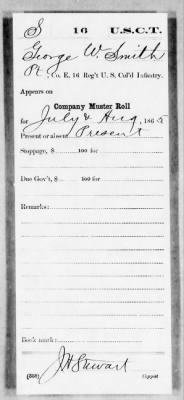 S 16 U.S.C.T.
George W. Smith
Pt, Co. E, 16 Reg't U. S. Col'd Infantry.
Appears on
Company Muster Roll
for July & Aug, 1865
Present or absent Present
Stoppage, $ 100 for
Due Gov't, $ 100 for
Remarks:
Book mark:
J H Stewart
(358) Copyist